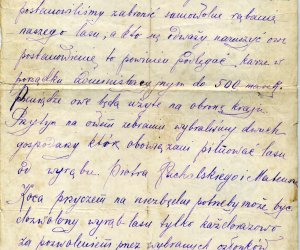 postanowiliśmy zabronić samowolne rąbanie
naszego lasu, a kto się odważy naruszyć owe
postanowienie to powinien podlegać karze w
porządku administracyjnym do 500 marek.
Pieniądze owe będą użyte na obronę kraju
na owem zebraniu wybraliśmy dwóch
gospodarzy którzy obowiązani pilnować lasu
do wyrębu. Piotra i Mateusza
Koca przyczem na niezbędne potrzeby może być
dozwolony wyrąb lasu tylko każdorazowo
za pozwoleniem przez wybranych członków